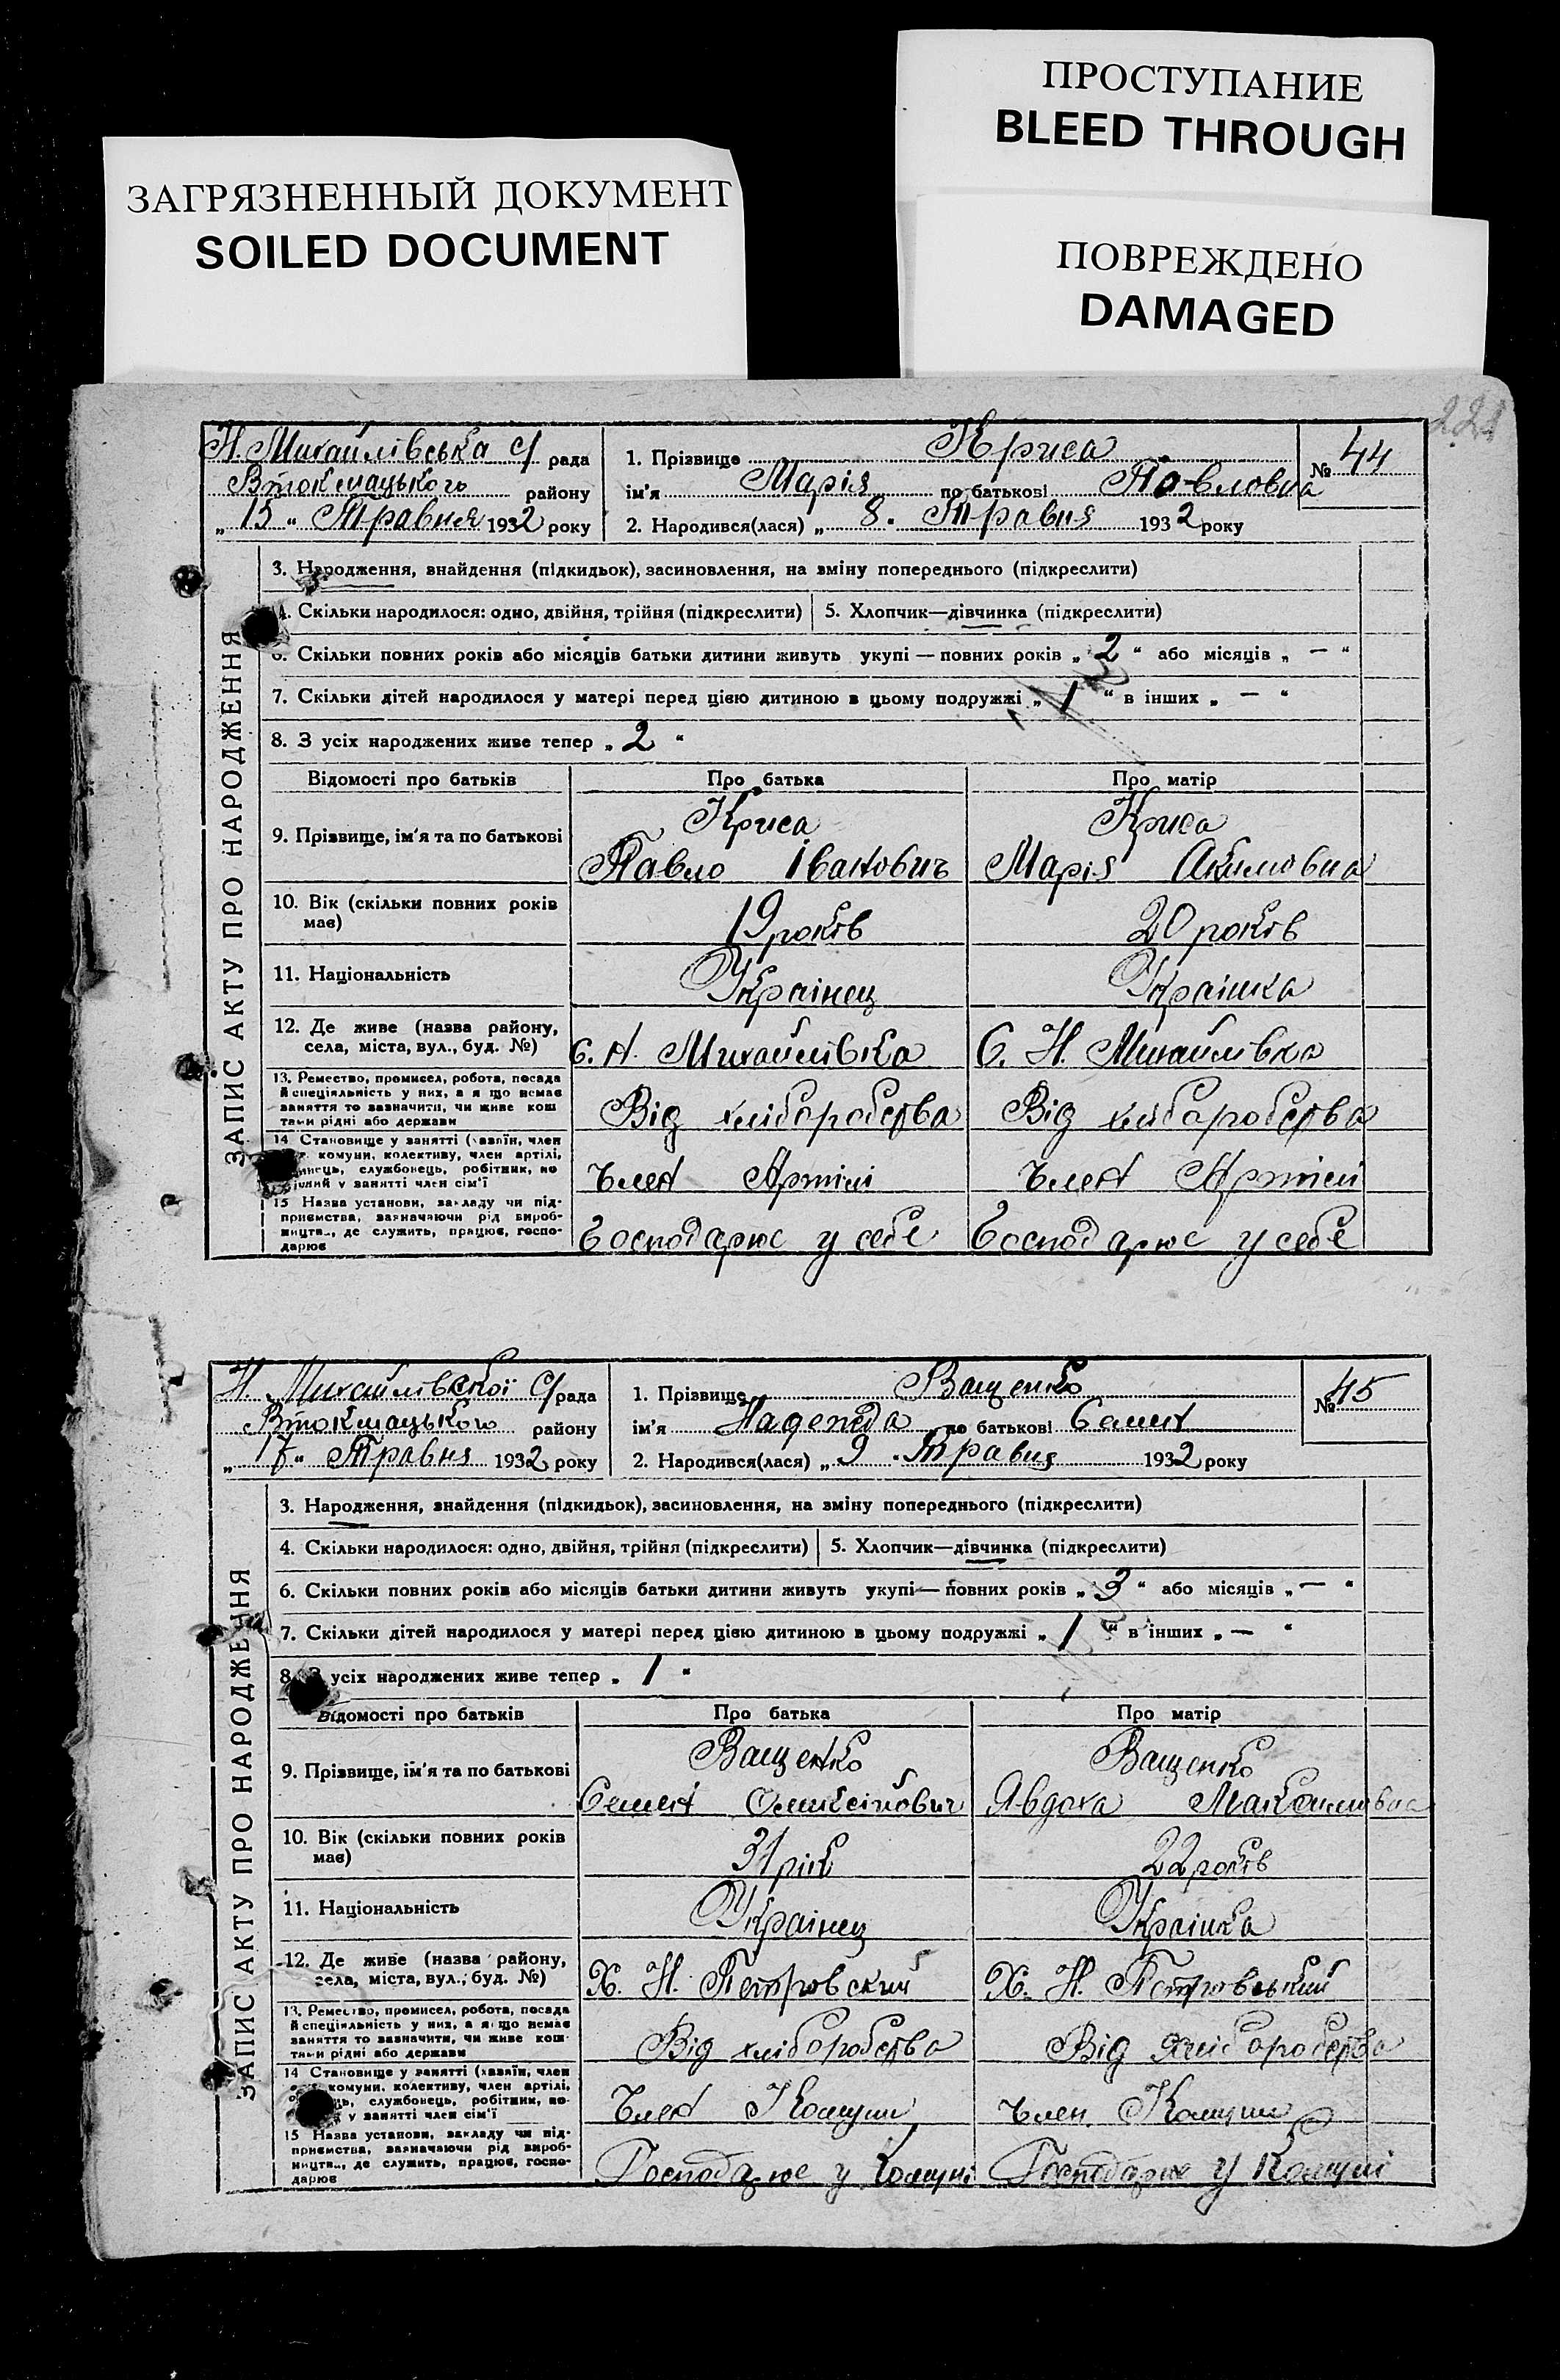 ПРОСТУПАНИЕ
BLEED THROUGH
ЗАГРЯЗНЕННЫЙ ДОКУМЕНТ
SOILED DOCUMENT
ПОВРЕЖДЕНО
DAMAGED
221
ЗАПИС АКТУ ПРО НАРОДЖЕННЯ
Н. Михайлівська с/ рада
Втокмацького району
„ 15 “ Травня 1932 року
1. Прізвище Криса
№ 44
ім'я Марія по батькові Павловна
2. Народився(лася) „ 8 . Травня 1932 року
3. Народження, знайдення (підкидьок), засиновлення, на зміну попереднього (підкреслити)
4. Скільки народилося: одно, двійня, трійня (підкреслити) 5. Хлопчик—дівчинка (підкреслити)
6. Скільки повних років або місяців батьки дитини живуть укупі — повних років „ 2 “ або місяців „ — “
7. Скільки дітей народилося у матері перед цією дитиною в цьому подружжі „ 1 “ в інших „ — “
8. З усіх народжених живе тепер „ 2 “
Відомості про батьків Про батька Про матір
9. Прізвище, ім'я та по батькові
Криса Криса
Павло Іванович Марія Акимовна
10. Вік (скільки повних років має)
19 років 20 років
11. Національність
Українец Українка
12. Де живе (назва району,
села, міста, вул., буд. №)
с. Н. Михайлівка С. Н. Михайлівка
13. Ремество, промисел, робота, посада
й спеціяльність у них, а якщо немає
заняття то зазначити, чи живе кош
тами рідні або держави
Від хліборобства Від хліборобства
14 Становище у занятті (хазяїн, член
комуни, колективу, член артілі,
службовець, робітник, по
у занятті член сім'ї
Член Артілі Член Артілі
15 Назва установи, закладу чи під-
приємства, зазначаючи рід вироб-
ництва, де служить, працює, госпо-
дарює
Господарює у себе Господарює у себе
ЗАПИС АКТУ ПРО НАРОДЖЕННЯ
Н. Михайлівської с/рада
Втокмацького району
„ 17 “ Травня 1932 року
1. Прізвище Ващенко
№ 45
ім'я Надежда по батькові Семен
2. Народився(лася) „ 9 . Травня 1932 року
3. Народження, знайдення (підкидьок), засиновлення, на зміну попереднього (підкреслити)
4. Скільки народилося: одно, двійня, трійня (підкреслити) 5. Хлопчик—дівчинка (підкреслити)
6. Скільки повних років або місяців батьки дитини живуть укупі — повних років „ 3 “ або місяців „ — “
7. Скільки дітей народилося у матері перед цією дитиною в цьому подружжі „ 1 “ в інших „ — “
8. З усіх народжених живе тепер „ 1 “
Відомості про батьків Про батька Про матір
9. Прізвище, ім'я та по батькові
Ващенко Ващенко
Семен Олексійович Явдоха Максимівна
10. Вік (скільки повних років
має)
31 рік 22 років
11. Національність
Українец Українка
12. Де живе (назва району,
села, міста, вул., буд. №)
Х. Н. Петровский Х. Н. Петровський
13. Ремество, промисел, робота, посада
й спеціяльність у них, а якщо немає
заняття то зазначити, чи живе кош-
тами рідні або держави
Від хліборобства Від хліборобства
14 Становище у занятті (хазяїн, член
комуни, колективу, член артілі,
службовець, робітник, по-
у занятті член сім'ї
Член Комуни Член Комуни
15 Назва установи, закладу чи під-
приємства, зазначаючи рід вироб-
ництва, де служить, працює, госпо-
дарює
Господарює у Комуні Господарює у Комуні